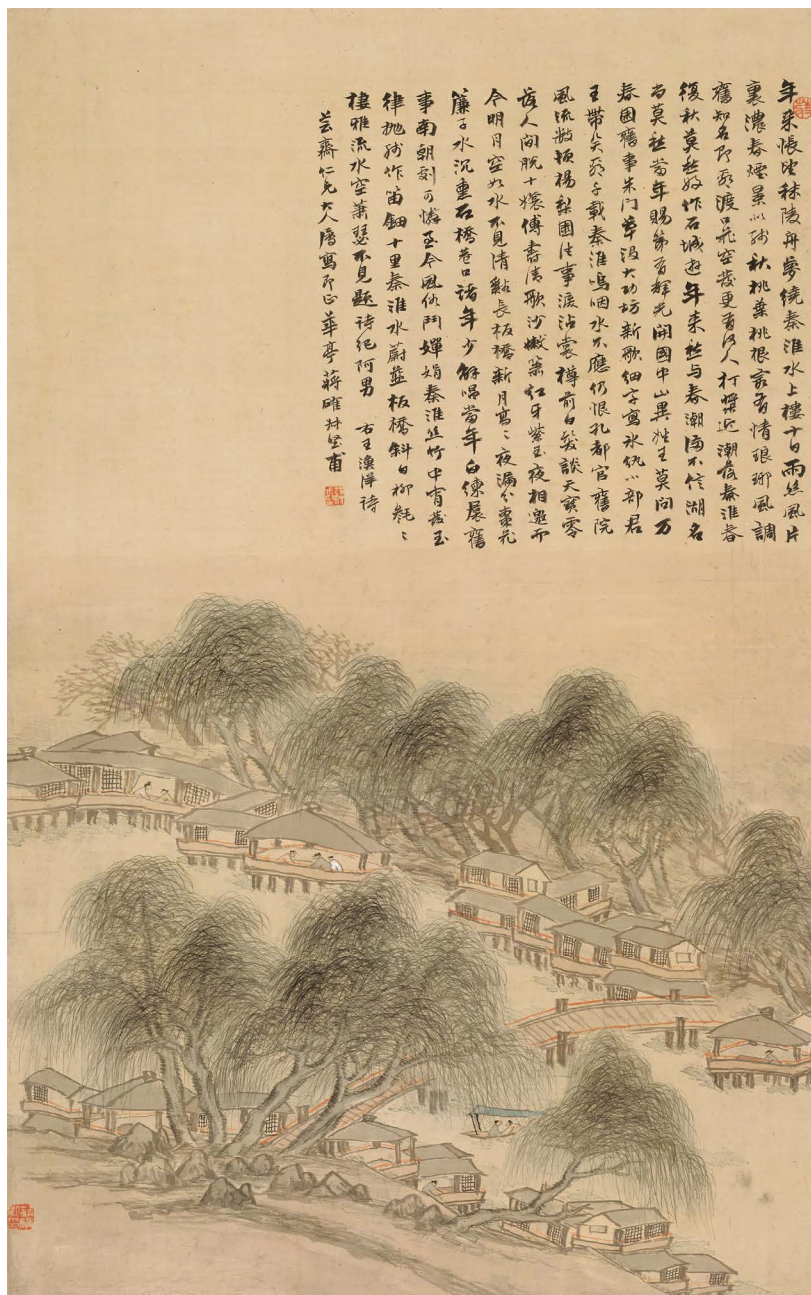 年来悵望秣陵舟夢繞秦淮水上樓十日雨絲風片
裏濃春煙景似殘秋桃葉桃根最有情琅琊風調
舊知名即看渡口花空發更有何人打槳迎潮落秦淮春
復秋莫愁好作石城遊年来愁与春潮滿不信湖名
尚莫愁當年賜第有輝光開國中山異姓王莫問万
春園舊事朱门草沒大功坊新歌細字寫冰紈小部君
王帶笑看千載秦淮嗚咽水不應仍恨孔都官舊院
風流數頓楊梨園往事淚沾裳樽前白髮談天寶零
落人間脫十孃傅壽清歌沙嫩簫紅牙紫玉夜相邀而
今明月空如水不見清谿長板橋新月高〻夜漏分棗花
簾子水沉熏石橋巷口諸年少解唱當年白練裙舊
事南朝劇可憐至今風俗鬥嬋娟秦淮絲竹中宵發玉
律拋殘作笛鈿十里秦淮水蔚藍板橋斜日柳毿〻
棲鴉流水空蕭瑟不見題詩紀阿男 右王漁洋詩
芸齋仁兄大人屬寫即正華亭蔣確叔堅甫